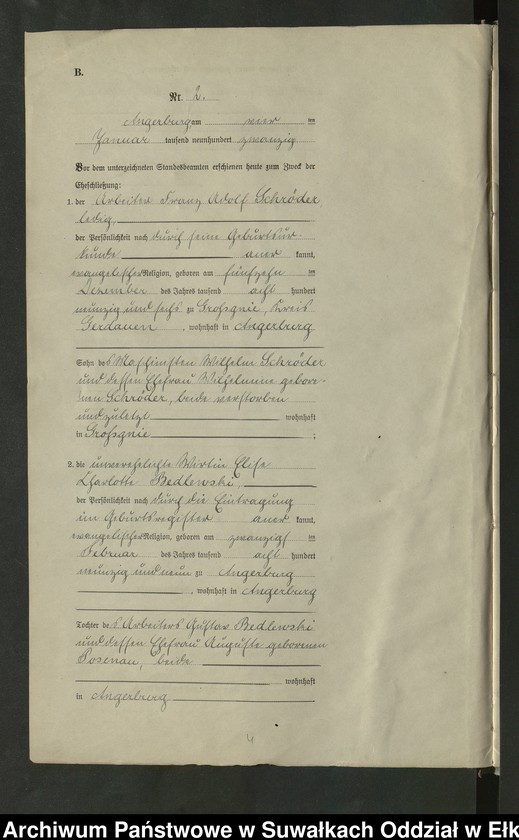 B.
Nr. 2.
Angerburg am vier ten
Januar tausend neunhundert zwanzig
Vor dem unterzeichneten Standesbeamten erschienen heute zum Zweck der
Eheschließung:
1. der Arbeiter Franz Adolf Schröder
ledig,
der Persönlichkeit nach durch seine Geburtsur-
kunde aner kannt,
evangelischer Religion, geboren am fünfzehn ten
Dezember des Jahres tausend acht hundert
neunzig und sechs zu Großgnie, Kreis
Gerdauen, wohnhaft in Angerburg
Sohn des Maschinisten Wilhelm Schröder
und dessen Ehefrau Wilhelmine gebore-
nen Schröder, beide verstorben
und zuletzt wohnhaft
in Großgnie ;
2. die unverehelichte Wirtin Elise
Charlotte Bedlewski,
der Persönlichkeit nach durch die Eintragung
im Geburtsregister aner kannt,
evangelischer Religion, geboren am zwanzigs ten
Februar des Jahres tausend acht hundert
neunzig und neun zu Angerburg
, wohnhaft in Angerburg
Tochter des Arbeiters Gustav Bedlewski
und dessen Ehefrau Auguste geborenen
Rosenau, beide
wohnhaft
in Angerburg
4
Archiwum Państwowe w Suwałkach Oddział w Ełk